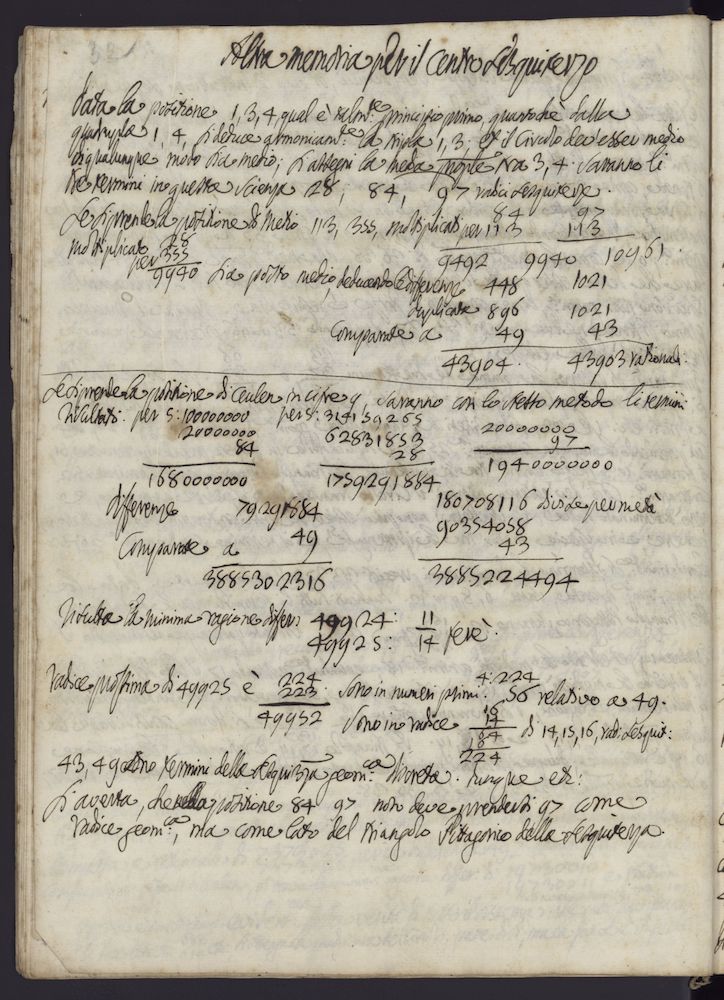 Altra memoria per il centro Sesquiterzo
Data la posizione 1, 3, 4, qual è principio primo, quando che dalla
quadrupla 1, 4, si deduce armonicam.te la tripla 1, 3; e il Circolo dee esser medio
in qualunque modo sia medio; s'assegni la media tra 3, 4. Saranno li
tre termini in questa Scienza 28, 84, 97 radici Sesquiterze.
Se si prende la posizione di Metio 113, 355, moltiplicati per 84 97
113 113
moltiplicato 28
per 355
9492 9940 10961.
9940 sia posto medio, deducendo le differenze 448 1021
duplicate 896 1021
Comparate a 49 43
43904. 43903 razionali:
Se si prende la posizione di Ceulen in cifre 9, saranno con lo stesso metodo li termini
risultati. per s: 100000000 per s: 314159265
20000000 62831853 20000000
84 28 97
1680000000 1759291884 1940000000
differenze 79291884 180708116 divise per metà
90354058
Comparate a 49 43
3885302316 3885224494
Risulta la minima ragione differ: 49924: 11
49925: 14 fere.
Radice prossima di 49925 è 224 Sono in numeri primi. 4:224
223. 56 relativo a 49.
49952 Sono in radice 16
14 di 14, 15, 16, radi Sesquit:
64
16
224
43, 49 sono termini della Sesquiterza geom.ca discreta. Dunque etc:
S'averta, che nella posizione 84 97 non deve prendersi 97 come
radice geom.ca, ma come lato del triangolo Pitagorico della Sesquiterza.